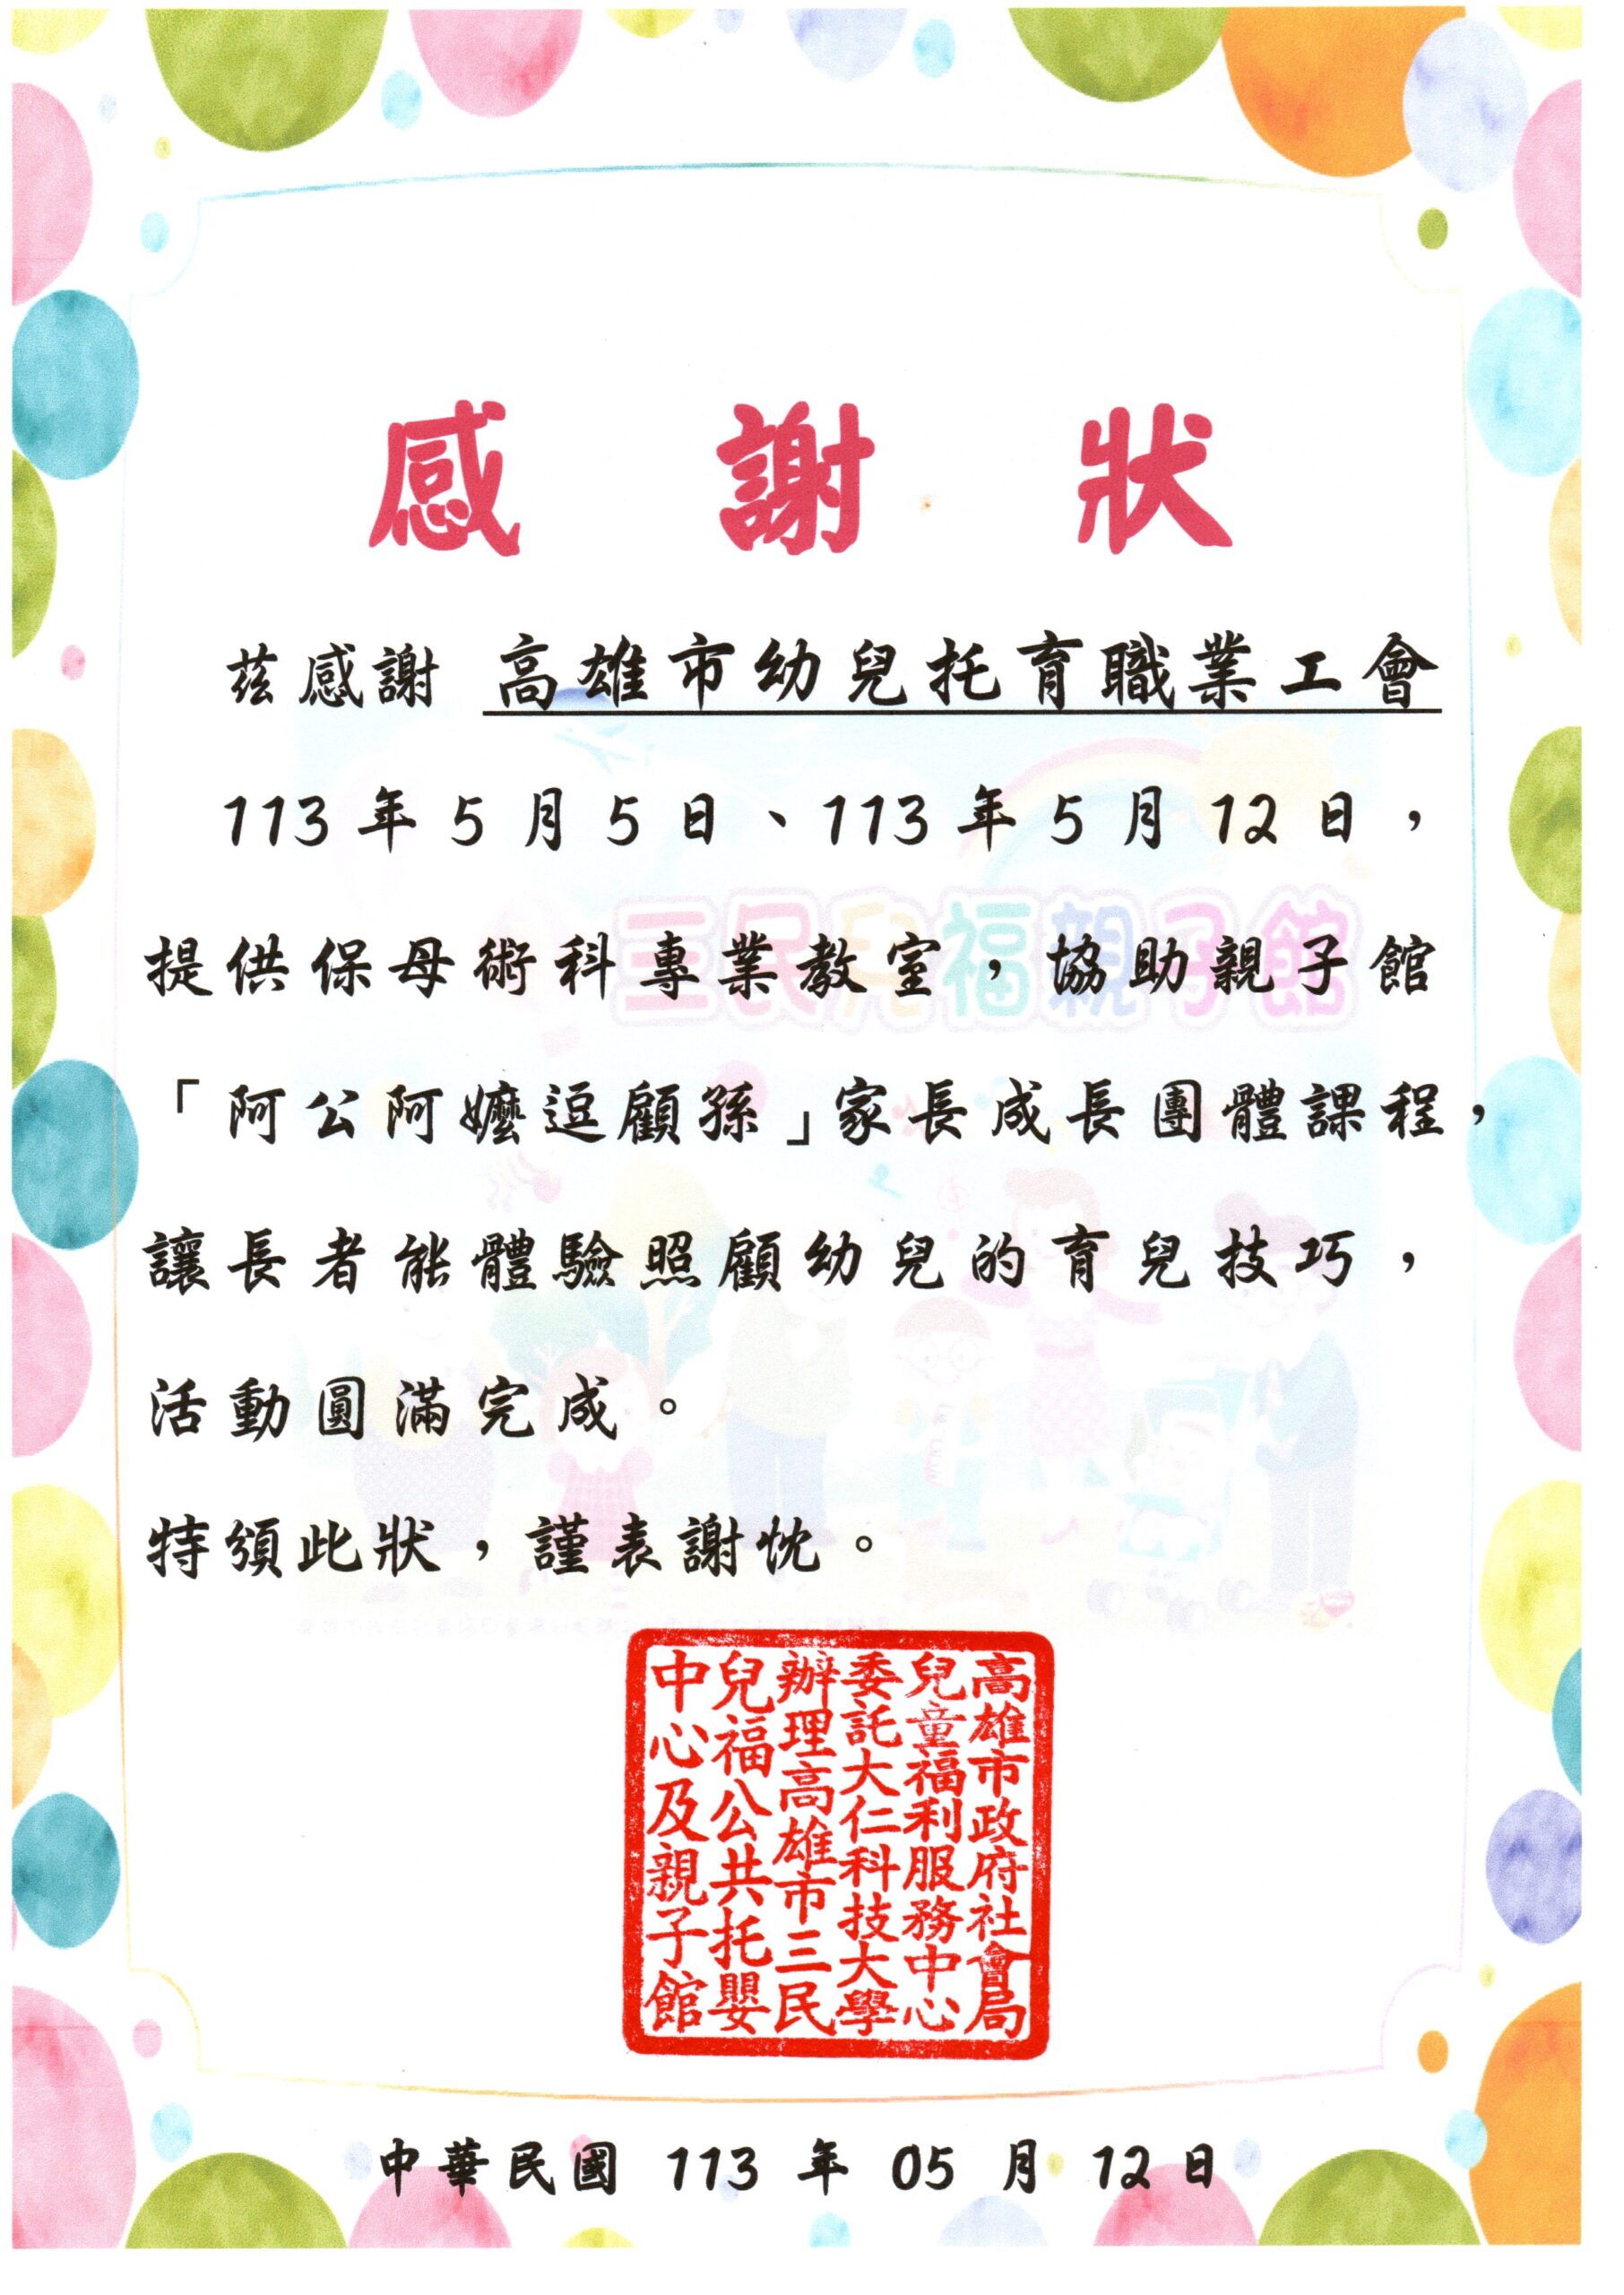 感謝狀
茲感謝 高雄市幼兒托育職業工會
113年5月5日、113年5月12日，
三民兒福親子館
提供保母術科專業教室，協助親子館
「阿公阿嬤逗顧孫」家長成長團體課程，
讓長者能體驗照顧幼兒的育兒技巧，
活動圓滿完成。
特頒此狀，謹表謝忱。
高雄市政府社會局
兒童福利服務中心
委託大仁科技大學
辦理高雄市三民
兒福公共托嬰
中心及親子館
中華民國 113 年 05 月 12 日